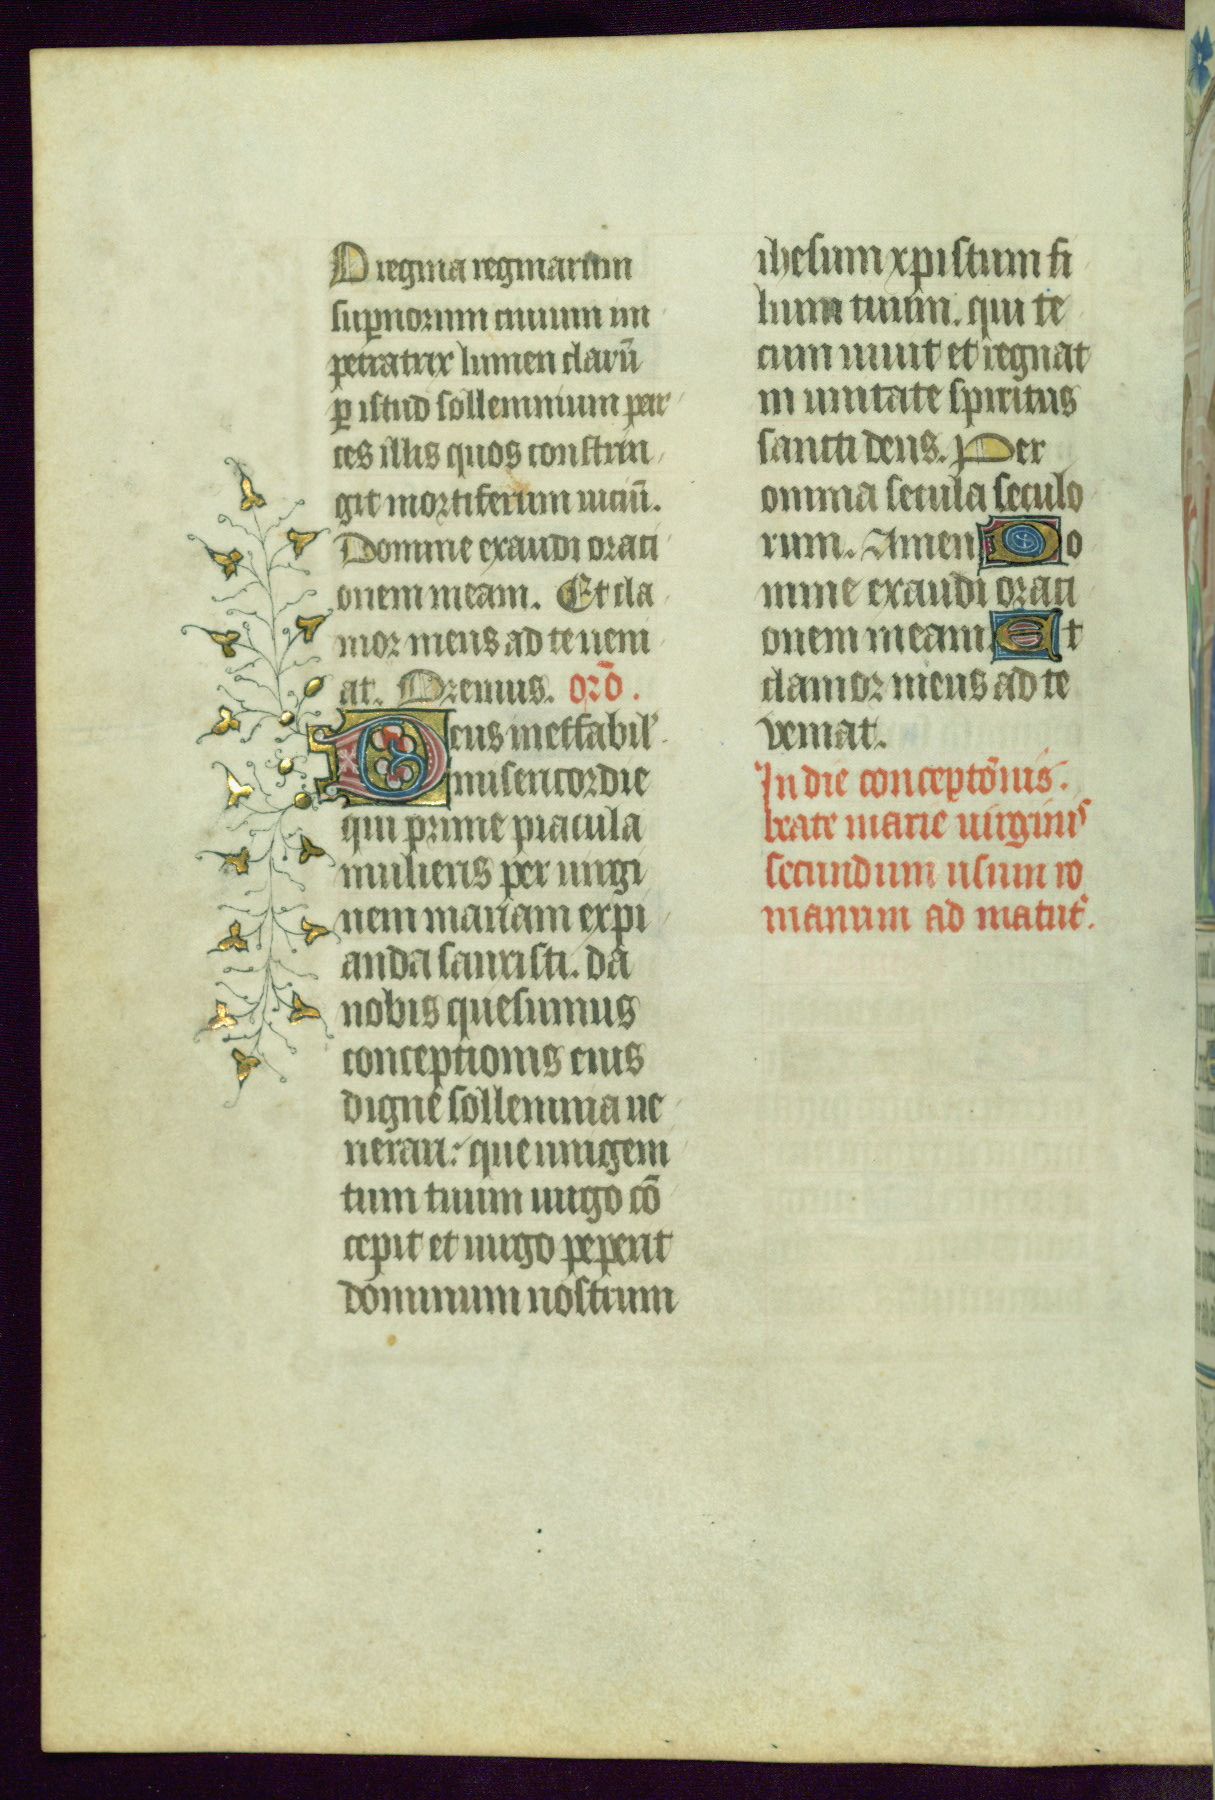 O regina reginarum
supnorum ciuium im
petratrix lumen clarū
p istud sollemnium par
ces illis quos constrin
git mortiferum uiciū.
Domine exaudi orati
onem meam. Et cla
mor meus ad te ueni
at. Oremus. orō.
Deus ineffabil'
misericordie
qui prime piacula
mulieris per uirgi
nem mariam expi
anda sanxisti. da
nobis quesumus
conceptionis eius
digne sollemnia ue
nerari: que unigeni
tum tuum uirgo cō
cepit et uirgo peperit
dominum nostrum
ihesum xpistum fi
lium tuum. qui te
cum uiuit et regnat
in unitate spiritus
sancti deus. Per
omnia secula seculo
rum. Amen Do
mine exaudi orati
onem meam. Et
clamor meus ad te
veniat.
In die conceptōnis.
beate marie uirginis
secundum usum ro
manum ad matut'.